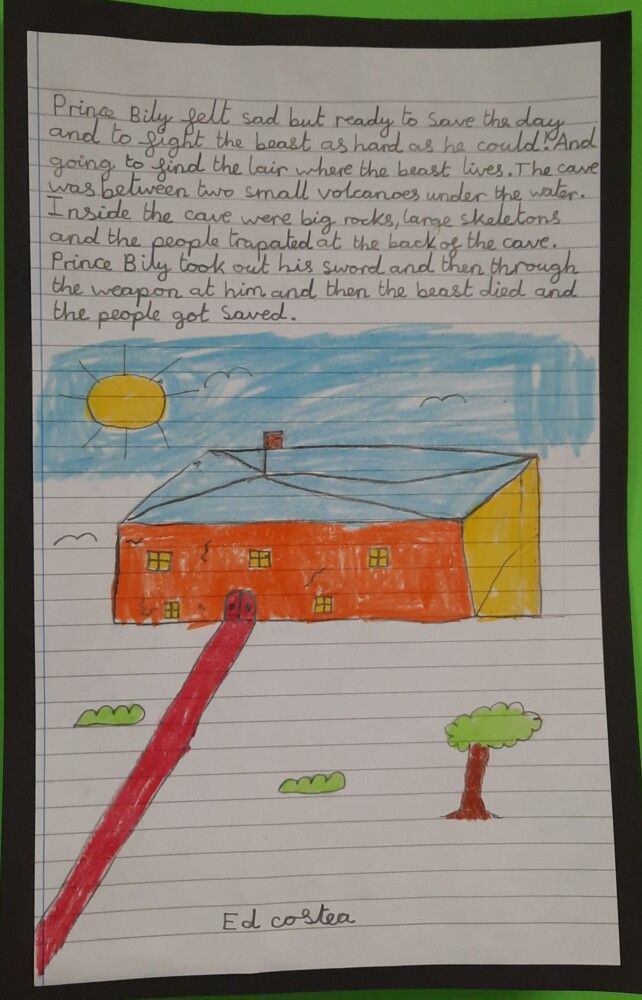 Prince Bily felt sad but ready to save the day
and to fight the beast as hard as he could! And
going to find the lair where the beast lives. The cave
was between two small volcanoes under the water.
Inside the cave were big rocks, large skeletons
and the people trapated at the back of the cave.
Prince Bily took out his sword and then through
the weapon at him and then the beast died and
the people got saved.
Ed costea